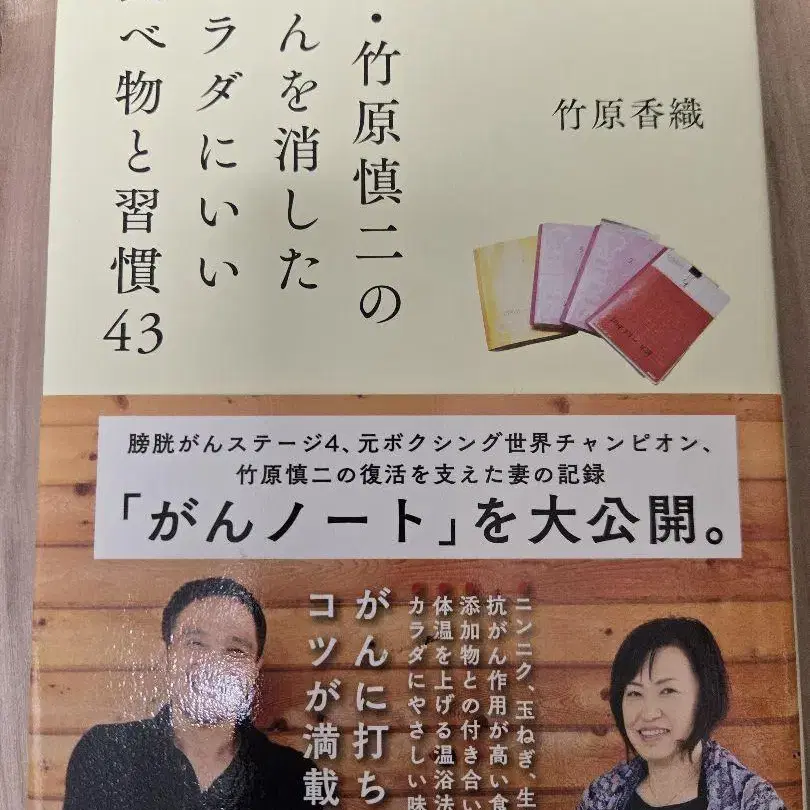 ・竹原慎二の
んを消した
ラダにいい
べ物と習慣43
竹原香織
膀胱がんステージ4、元ボクシング世界チャンピオン、
竹原慎二の復活を支えた妻の記録
「がんノート」を大公開。
ニンニク、玉ねぎ、生
抗がん作用が高い食
添加物との付き合い
体温を上げる温浴法
カラダにやさしい味
がんに打ち
コツが満載